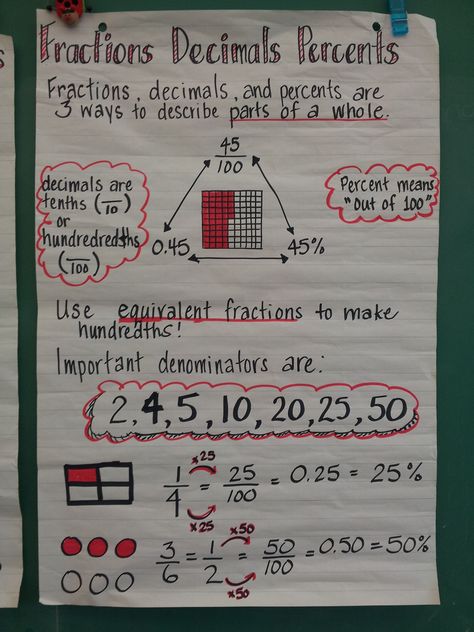 Fractions Decimals Percents
Fractions, decimals, and percents are
3 ways to describe parts of a whole.
45/100
decimals are
tenths (—/10)
or
hundredredths
(—/100)
Percent means
"out of 100"
0.45
45%
Use equivalent fractions to make
hundredths!
Important denominators are:
2, 4, 5, 10, 20, 25, 50
x25
1/4 = 25/100 = 0.25 = 25%
x25
x50
3/6 = 1/2 = 50/100 = 0.50 = 50%
x50